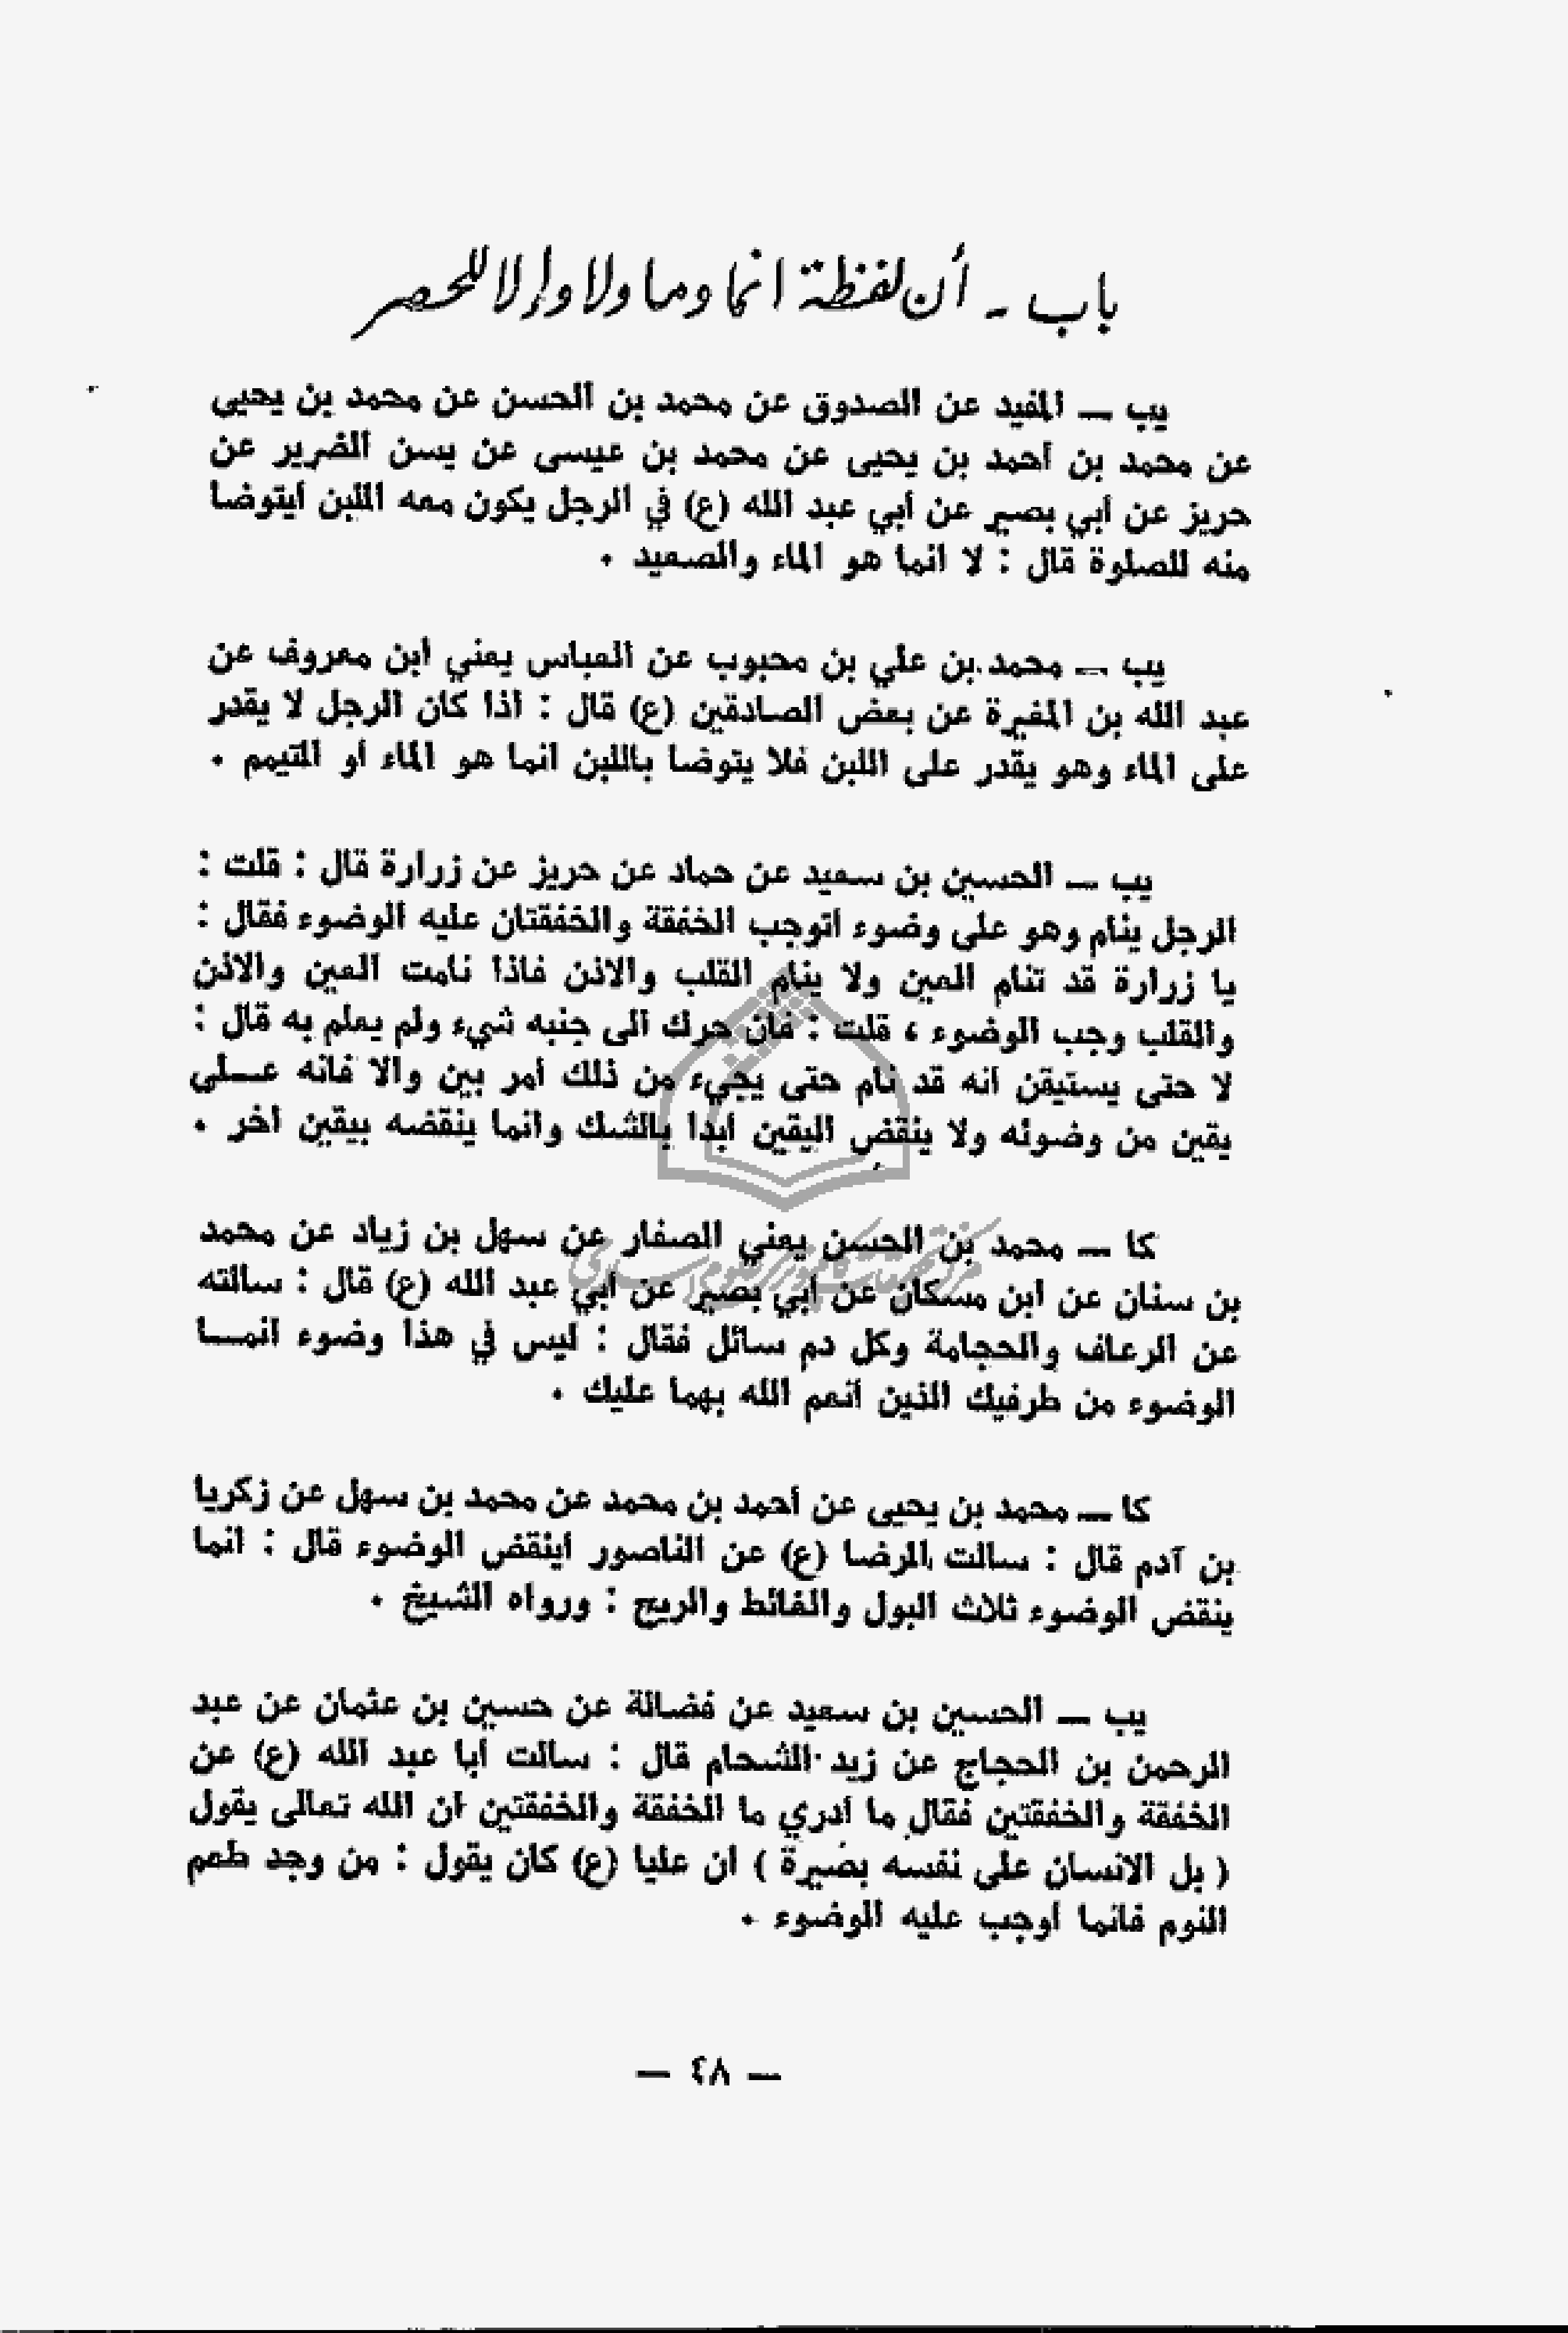 باب - أن لفظة انما وما ولا وإلا للحصر
يب — المفيد عن الصدوق عن محمد بن الحسن عن محمد بن يحيى
عن محمد بن أحمد بن يحيى عن محمد بن عيسى عن يسن الضرير عن
حريز عن أبي بصير عن أبي عبد الله (ع) في الرجل يكون معه اللبن أيتوضأ
منه للصلوة قال : لا انما هو الماء والصعيد .
يب — محمد بن علي بن محبوب عن العباس يعني ابن معروف عن
عبد الله بن المغيرة عن بعض الصادقين (ع) قال : اذا كان الرجل لا يقدر
على الماء وهو يقدر على اللبن فلا يتوضأ باللبن انما هو الماء أو التيمم .
يب — الحسين بن سعيد عن حماد عن حريز عن زرارة قال : قلت :
الرجل ينام وهو على وضوء أتوجب الخفقة والخفقتان عليه الوضوء فقال :
يا زرارة قد تنام العين ولا ينام القلب والاذن فاذا نامت العين والاذن
والقلب وجب الوضوء ، قلت : فان حرك الى جنبه شيء ولم يعلم به قال :
لا حتى يستيقن أنه قد نام حتى يجيء من ذلك أمر بين والا فانه عـــلى
يقين من وضوئه ولا ينقض اليقين أبدا بالشك وانما ينقضه بيقين آخر .
كا — محمد بن الحسن يعني الصفار عن سهل بن زياد عن محمد
بن سنان عن ابن مسكان عن أبي بصير عن أبي عبد الله (ع) قال : سألته
عن الرعاف والحجامة وكل دم سائل فقال : ليس في هذا وضوء انمـــا
الوضوء من طرفيك الذين أنعم الله بهما عليك .
كا — محمد بن يحيى عن أحمد بن محمد عن محمد بن سهل عن زكريا
بن آدم قال : سألت الرضا (ع) عن الناصور أينقض الوضوء قال : انما
ينقض الوضوء ثلاث البول والغائط والريح : ورواه الشيخ .
يب — الحسين بن سعيد عن فضالة عن حسين بن عثمان عن عبد
الرحمن بن الحجاج عن زيد الشحام قال : سألت أبا عبد الله (ع) عن
الخفقة والخفقتين فقال ما أدري ما الخفقة والخفقتين ان الله تعالى يقول
( بل الانسان على نفسه بصيرة ) ان عليا (ع) كان يقول : من وجد طعم
النوم فانما أوجب عليه الوضوء .
— ٤٨ —